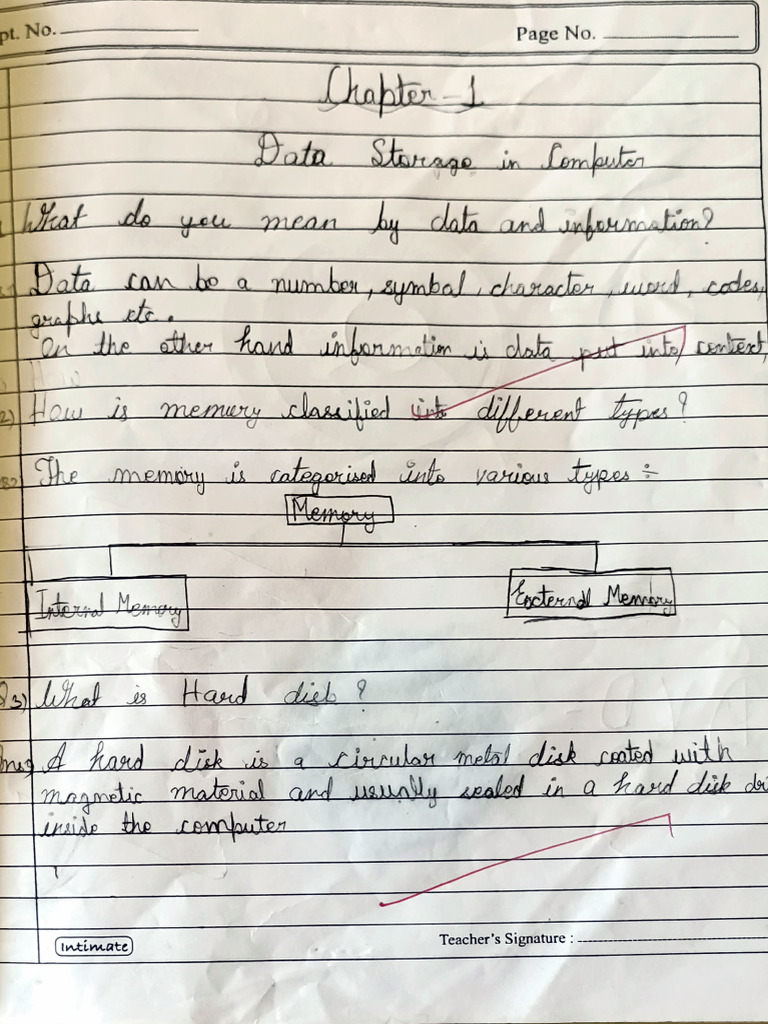 pt. No.
Page No.
Chapter-1
Data Storage in Computer
What do you mean by data and information?
Data can be a number, symbol, character, word, codes,
graphs etc.
On the other hand information is data put into context,
2) How is memory classified into different types?
The memory is categorised into various types ÷
Memory
Internal Memory
External Memory
3) What is Hard disk?
Ans A hard disk is a circular metal disk coated with
magnetic material and usually sealed in a hard disk dri
inside the computer
Intimate
Teacher's Signature :